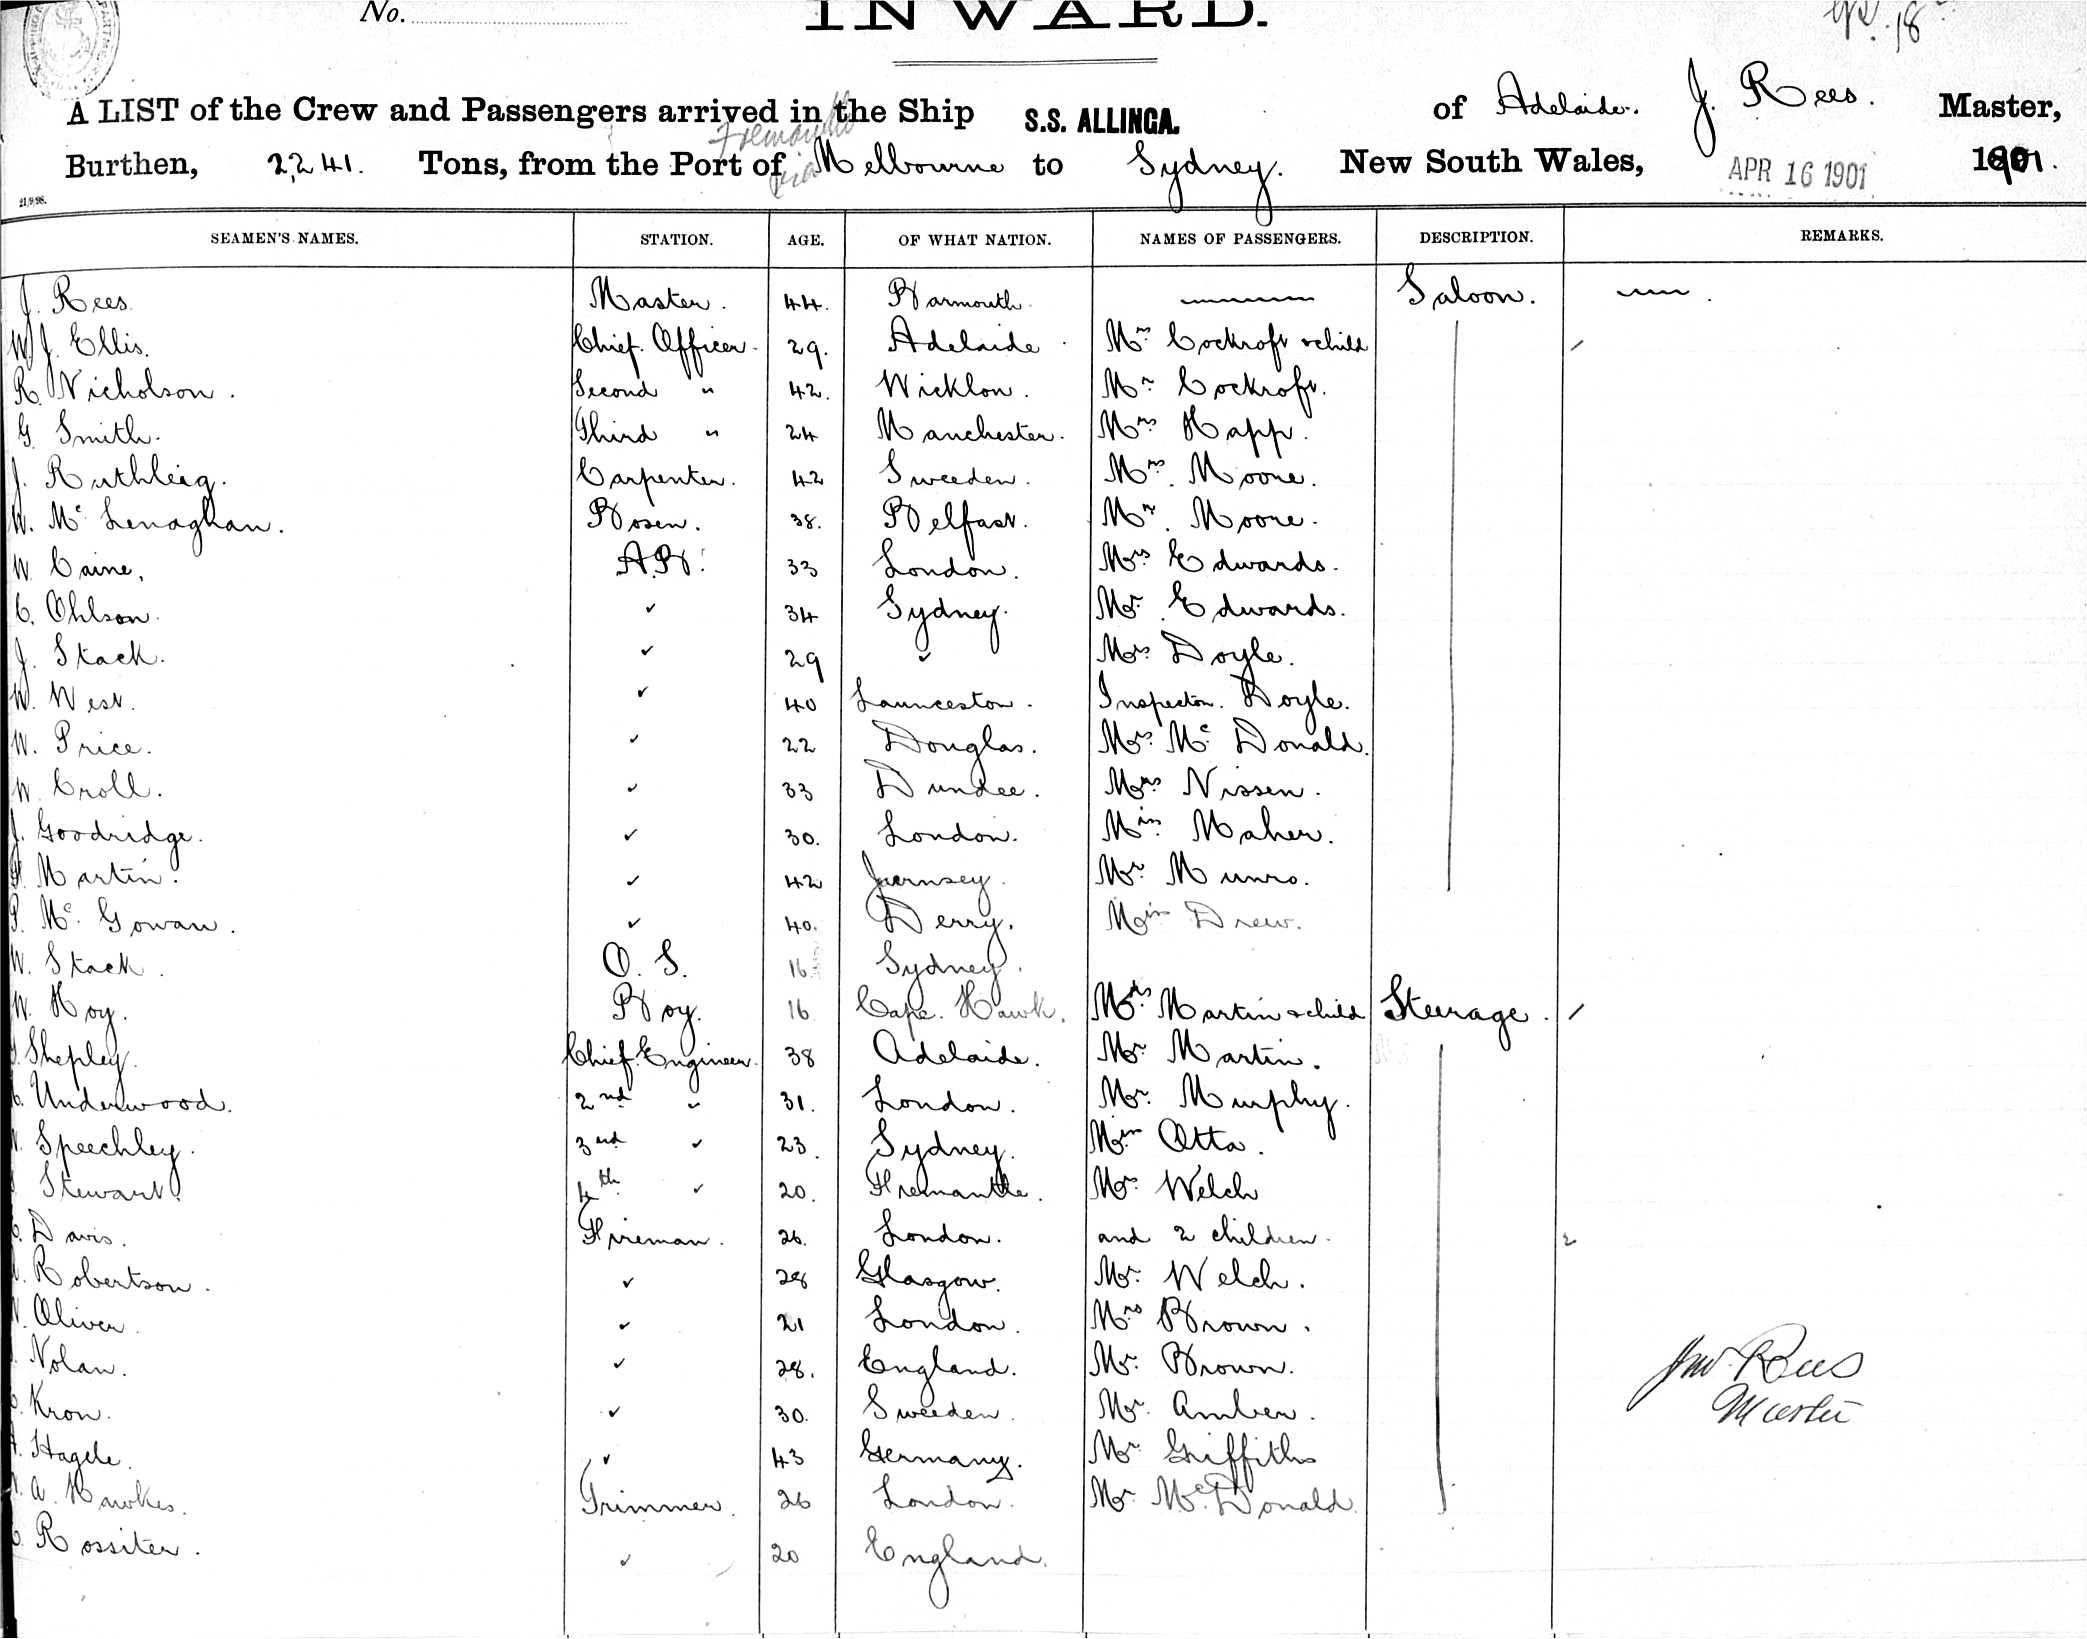 No.
INWARD.
A LIST of the Crew and Passengers arrived in the Ship S.S. ALLINGA. of Adelaide. J. Rees. Master,
Fremantle
Burthen, 2,241. Tons, from the Port of via Melbourne to Sydney. New South Wales, APR 16 1901 1901.
21/9/98.
SEAMEN'S NAMES. STATION. AGE. OF WHAT NATION. NAMES OF PASSENGERS. DESCRIPTION. REMARKS.
J. Rees. Master. 44. Yarmouth. Saloon.
W J. Ellis. Chief Officer. 29. Adelaide Mrs Cockroft & child
R. Nicholson. Second " 42. Wicklow. Mr Cockroft.
G. Smith. Third " 24 Manchester. Mrs Happ.
J. Ruthleig. Carpenter. 42 Sweeden. Mrs. Moore.
W. Mc Lenaghan. Bosen. 38. Belfast. Mr. Moore.
W. Caine. A.B. 33 London. Mrs Edwards.
C. Ohlson. " 34 Sydney. Mr. Edwards.
J. Stack. " 29 " Mrs Doyle.
W. West. " 40 Launceston. Inspector. Doyle.
W. Price. " 22 Douglas. Mrs Mc Donald.
W. Croll. " 33 Dundee. Mrs Nissen.
J. Goodridge. " 30. London. Miss Maher.
Martin. " 42 Guernsey. Mr Munro.
P. Mc. Gowan. " 40. Derry. Miss Drew.
W. Stack. O. S. 16 Sydney.
W. Hoy. Boy. 16 Cape. Hawk. Mrs Martin & child Steerage.
Shepley. Chief Engineer. 38 Adelaide. Mr. Martin.
Underwood. 2nd " 31. London. Mr. Murphy.
Speechley. 3rd " 23. Sydney. Miss Otta.
Stewart. 4th " 20. Fremantle. Mrs Welch
Davis. Fireman. 26. London. and 2 children. 2
Robertson. " 28 Glasgow. Mr. Welch.
Oliver. " 21 London. Mrs Brown.
Nolan. " 28. England. Mr. Brown.
Kron. " 30. Sweeden. Mr. Amber.
Hagele. " 43 Germany. Mr Griffiths
A. Hawkes. Trimmer. 26 London. Mr. McDonald.
Rossiter. " 20 England.
Jno. Rees
Master